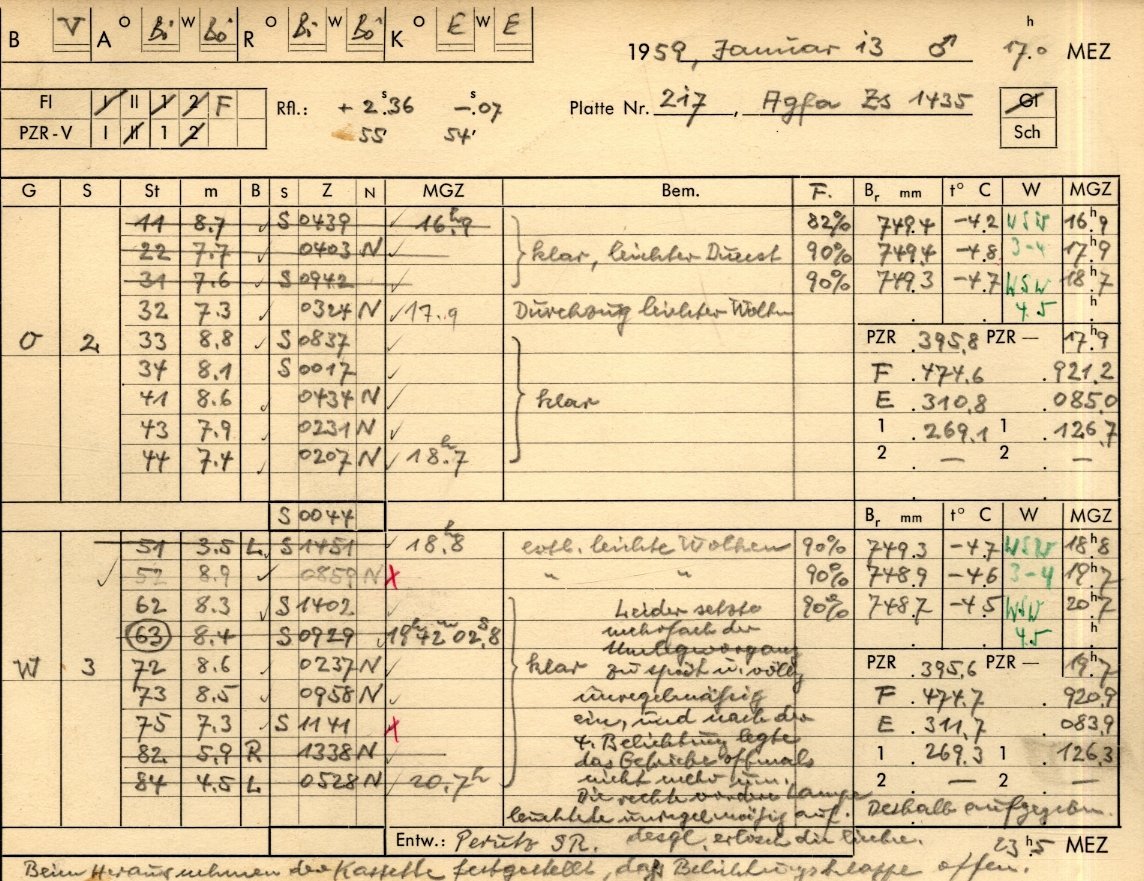 B V A O Bi W Bö R O Bi W Bö K O E W E
1959, Januar 13 ♂ 17.0 h MEZ
Fl I II 1 2 F Rfl.: + 2.36 s -.07 Platte Nr. 217, Agfa Zs 1435 Gl
PZR-V I II 1 2 55 54' Sch
G S St m B S Z N MGZ Bem. F. Br mm t° C W MGZ
11 8.7 ✓ S 0439 ✓ 16h.9 82% 749.4 -4.2 WSW 16h.9
22 7.7 ✓ 0403 N ✓ klar, leichter Dunst 90% 749.4 -4.8 3-4 17.9
31 7.6 ✓ S 0942 ✓ 90% 749.3 -4.7 WSW 18h.7
32 7.3 0324 N ✓ 17.9 Durchzug leichter Wolken 4.5 h
O 2 33 8.8 ✓ S 0837 PZR .395,8 PZR — 17h.9
34 8.1 S 0017 F .474.6 .921.2
41 8.6 ✓ 0434 N ✓ klar E .310.8 .085.0
43 7.9 ✓ 0231 N ✓ 1 .269.1 1 .126.7
44 7.4 ✓ 0207 N ✓ 18h.7 2 . — 2 . —
S 0044 Br mm t° C W MGZ
51 3.5 L S 1451 ✓ 18h.8 evtl. leichte Wolken 90% 749.3 -4.7 WSW 18h.8
✓ 52 8.9 ✓ 0859 N x " " 90% 748.9 -4.6 3-4 19h.7
62 8.3 ✓ S 1402 ✓ Leider setzte 90% 748.7 -4.5 WSW 20h.7
63 8.4 S 0929 ✓ 19h 42m 02s.8 mehrfach der 4.5 h
Umlegvorgang
W 3 72 8.6 0237 N ✓ klar zu spät u. völlig PZR .395,6 PZR — 19h.7
73 8.5 0958 N ✓ unregelmässig F .474.7 920.9
75 7.3 ✓ S 1141 x ein, und nach der E .311.7 083.9
4. Belichtung legte
82 5.9 R 1338 N ✓ das Getriebe oftmals 1 .269.3 1 .126.3
84 4.5 L 0528 N ✓ 20.7h nicht mehr um. 2 . — 2 . —
Die rechte vordere Lampe
leuchtete unregelmäßig auf. Deshalb aufgegeben.
Entw.: Perutz SR. desgl. erlosch die linke. 23h.5 MEZ
Beim Herausnehmen der Kassette festgestellt, dass Belichtungsklappe offen.